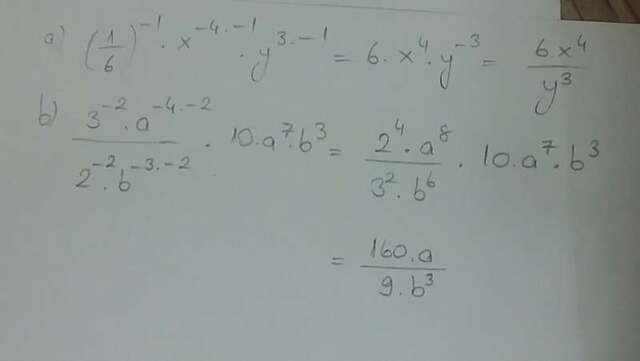 a) (1/6)^-1 · x^-4·-1 · y^3·-1 = 6·x^4·y^-3 = 6x^4/y^3
b) (3^-2·a^-4·-2)/(2^-2·b^-3·-2) · 10·a^7·b^3 = (2^4·a^8)/(3^2·b^6) · 10·a^7·b^3
= (160·a)/(9·b^3)